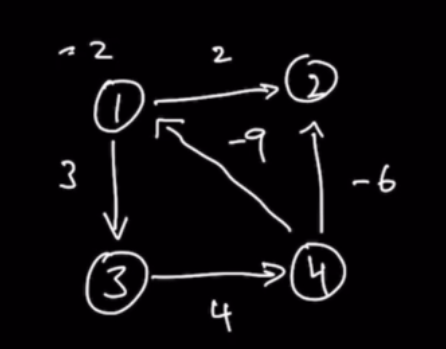 -2 2
1 2
-9
3 -6
3 4
4